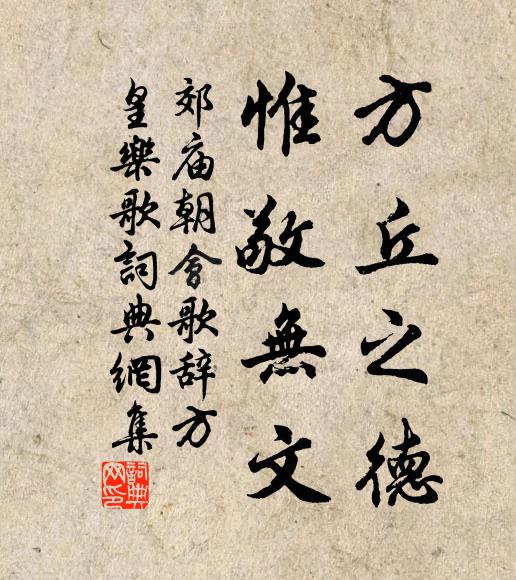 方丘之德
惟敬無文
郊庙朝會歌辞方
皇樂歌詞典網集
詞典
网印